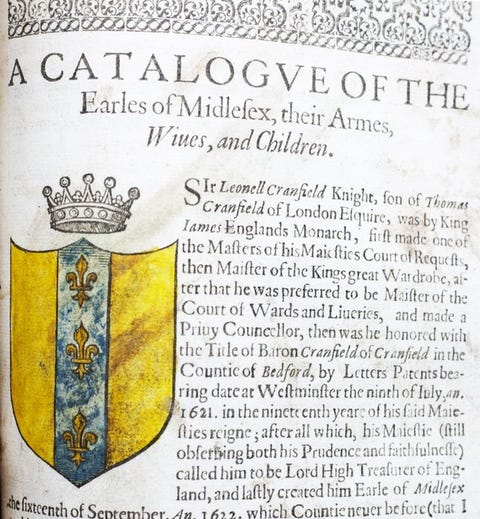 A CATALOGVE OF THE
Earles of Midlesex, their Armes,
Wiues, and Children.
SIr Leonell Cranfield Knight, son of Thomas
Cranfield of London Esquire, was by King
Iames Englands Monarch, first made one of
the Masters of his Maiesties Court of Requests,
then Maister of the Kings great Wardrobe, af-
ter that he was preferred to be Maister of the
Court of Wards and Liueries, and made a
Priuy Councellor, then was he honored with
the Title of Baron Cranfield of Cranfield in the
Countie of Bedford, by Letters Patents bea-
ring date at Westminster the ninth of Iuly, an.
1621. in the nineteenth yeare of his said Maie-
sties reigne; after all which, his Maiestie (still
obserbing both his Prudence and faithfulnesse)
called him to be Lord High Treasurer of Eng-
land, and lastly created him Earle of Midlesex
the sixteenth of September, An. 1622. which Countie neuer before (that I